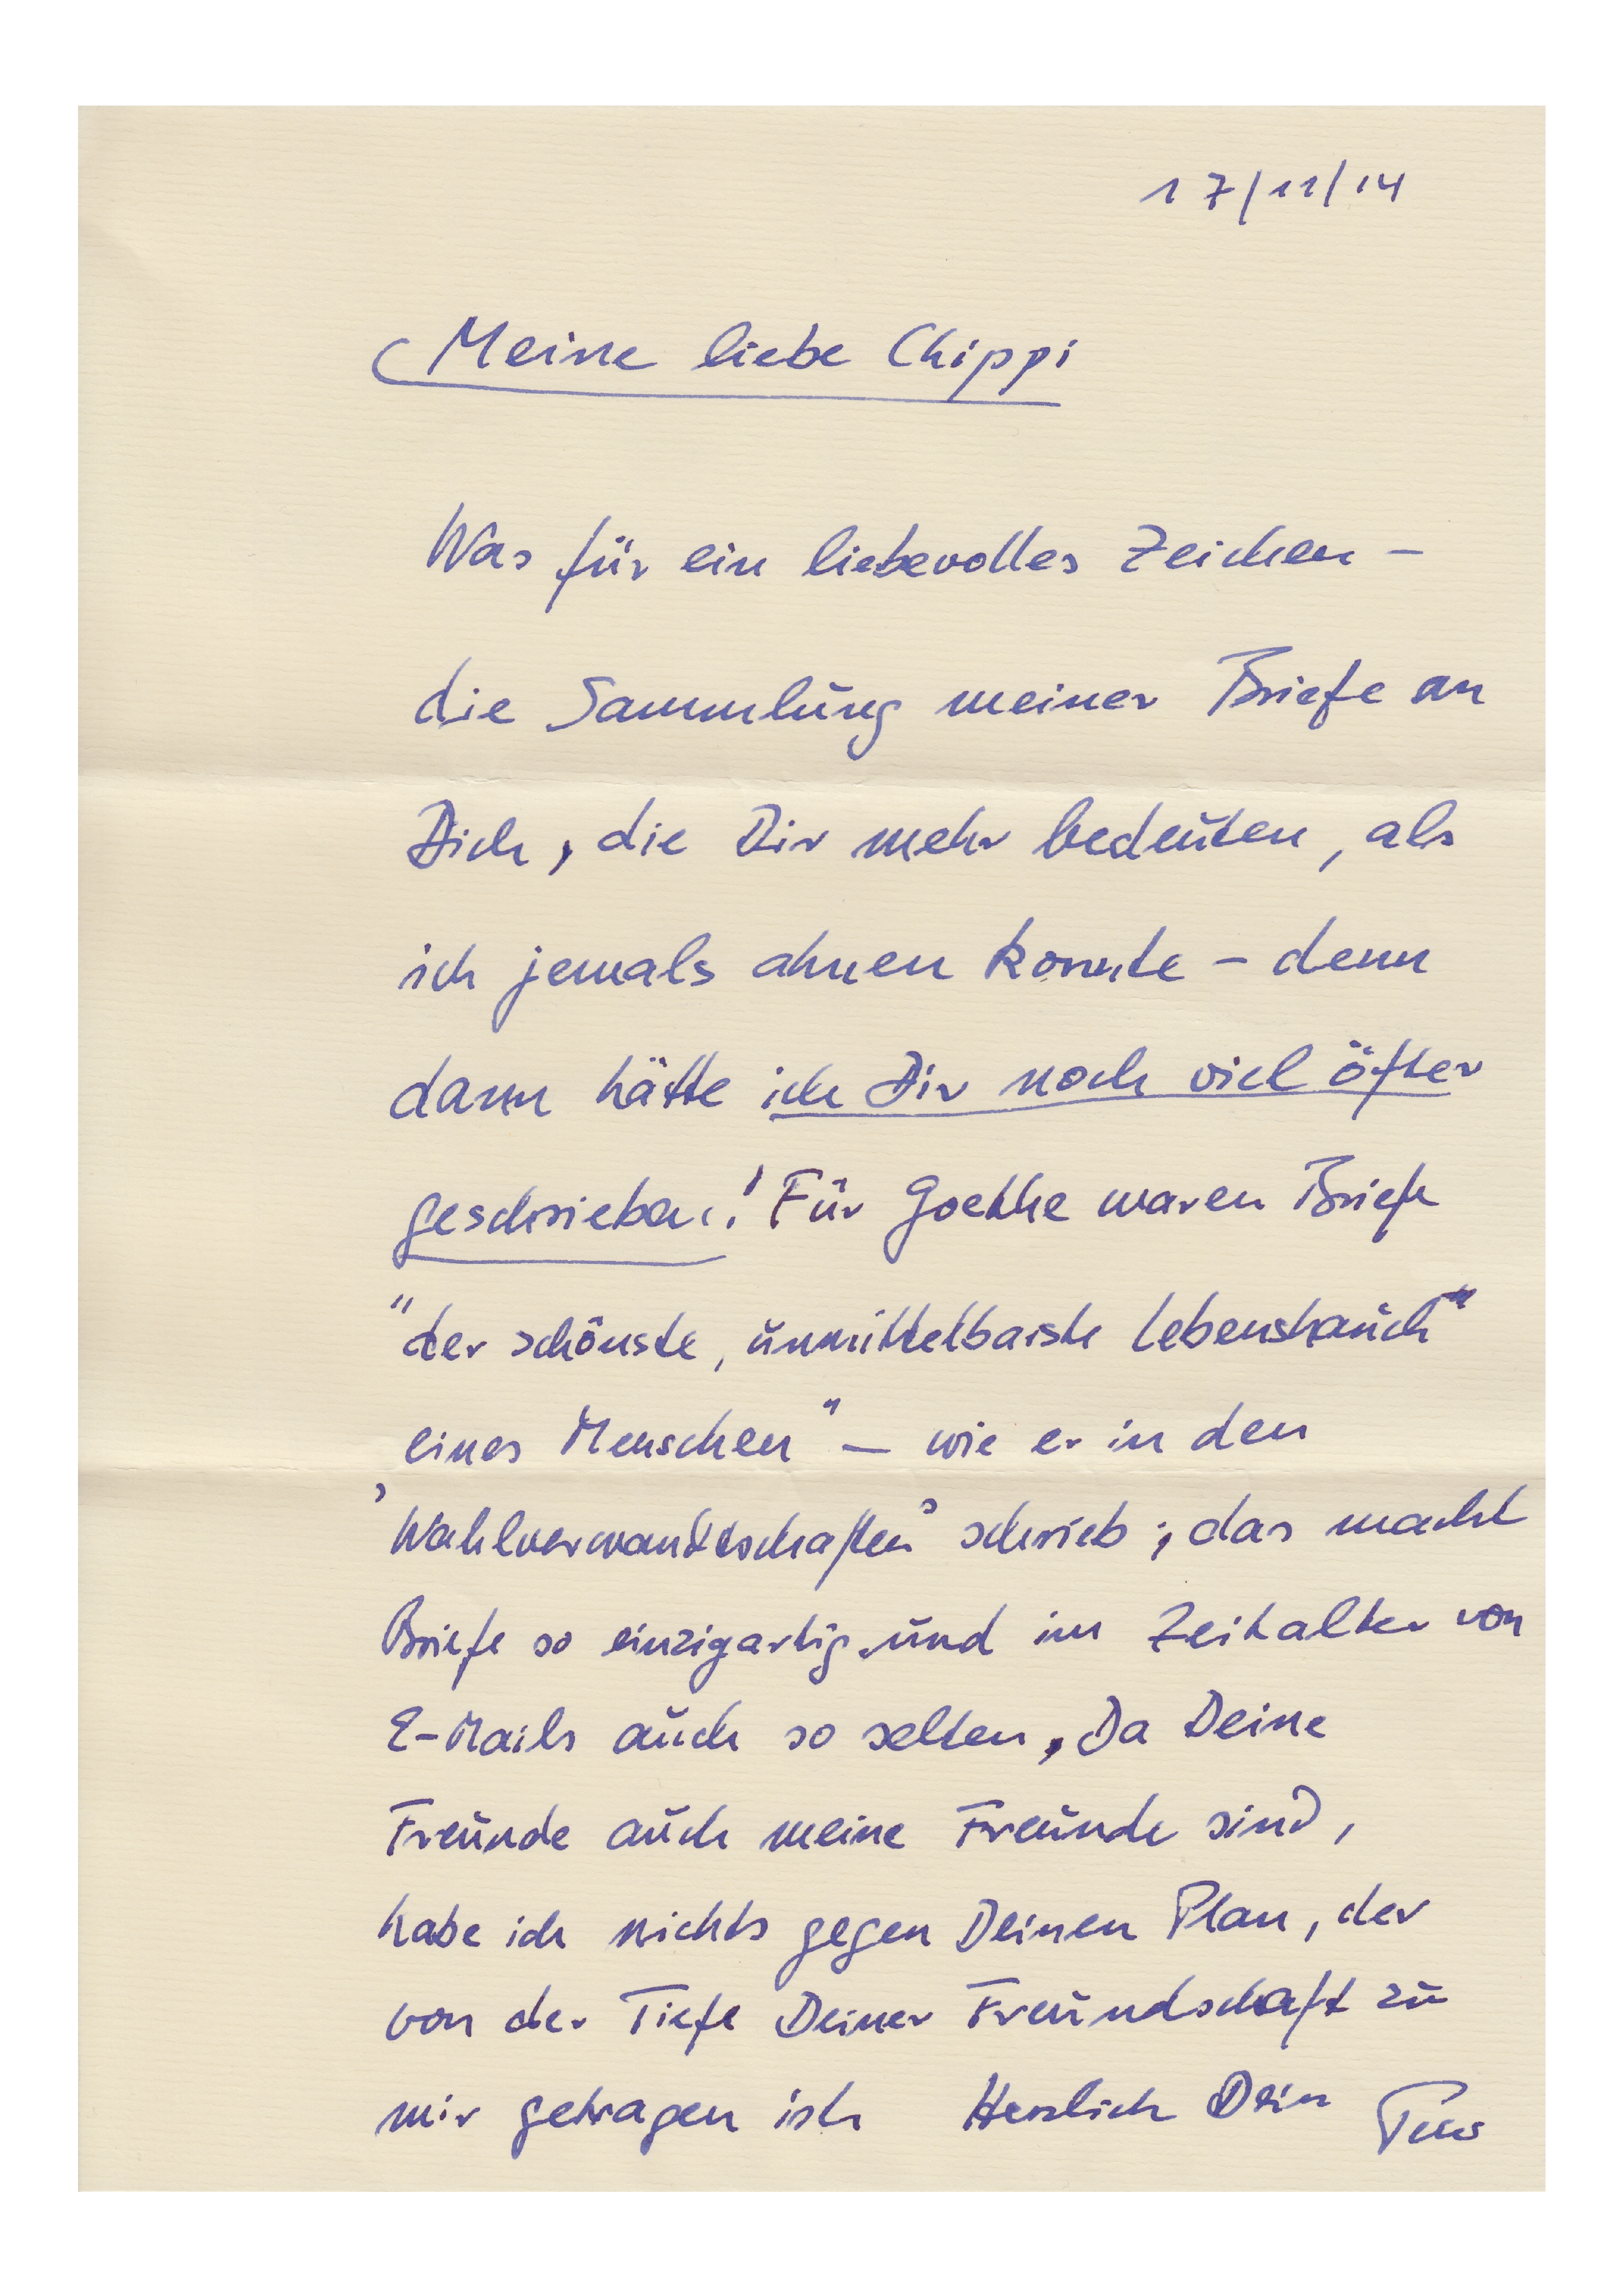 17/11/14
Meine liebe Chippi
Was für ein liebevolles Zeichen –
die Sammlung meiner Briefe an
Dich, die Dir mehr bedeuten, als
ich jemals ahnen konnte – denn
dann hätte ich Dir noch viel öfter
geschrieben! Für Goethe waren Briefe
"der schönste, unmittelbarste Lebenshauch"
eines Menschen" – wie er in den
'Wahlverwandtschaften' schrieb; das macht
Briefe so einzigartig und im Zeitalter von
E-Mails auch so selten. Da Deine
Freunde auch meine Freunde sind,
habe ich nichts gegen Deinen Plan, der
von der Tiefe Deiner Freundschaft zu
mir getragen ist Herzlich Dein